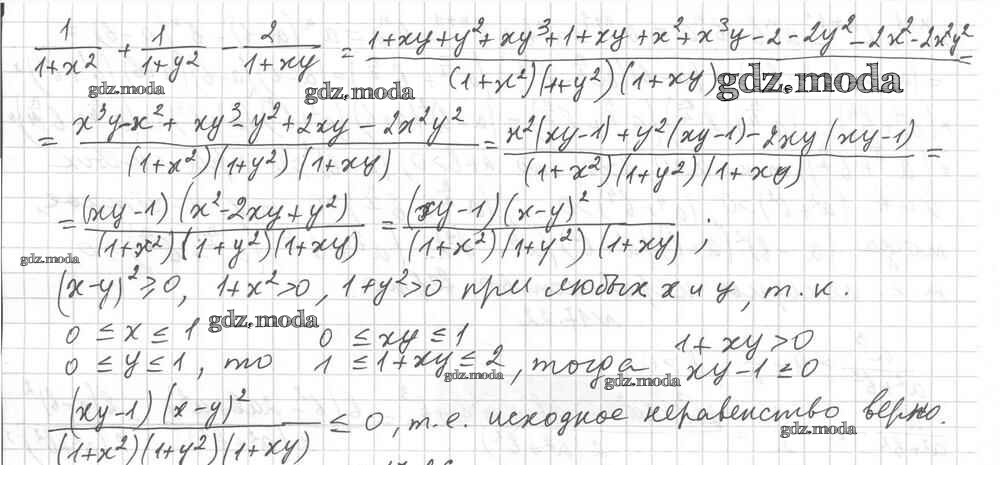 1/(1+x²) + 1/(1+y²) - 2/(1+xy) = (1+xy+y²+xy³+1+xy+x²+x³y-2-2y²-2x²-2x²y²)/((1+x²)(1+y²)(1+xy)) =
gdz.moda gdz.moda gdz.moda
= (x³y-x²+xy³-y²+2xy-2x²y²)/((1+x²)(1+y²)(1+xy)) = (x²(xy-1)+y²(xy-1)-2xy(xy-1))/((1+x²)(1+y²)(1+xy)) =
= ((xy-1)(x²-2xy+y²))/((1+x²)(1+y²)(1+xy)) = ((xy-1)(x-y)²)/((1+x²)(1+y²)(1+xy)) ;
gdz.moda
(x-y)² ≥ 0, 1+x²>0, 1+y²>0 при любых x и y, т.к.
gdz.moda
0 ≤ x ≤ 1 0 ≤ xy ≤ 1 1+xy>0
0 ≤ y ≤ 1, то 1 ≤ 1+xy ≤ 2, тогда xy-1 ≤ 0
gdz.moda gdz.moda
((xy-1)(x-y)²)/((1+x²)(1+y²)(1+xy)) ≤ 0, т.е. исходное неравенство верно.
gdz.moda